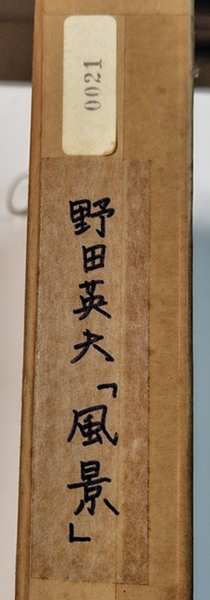 0021
野田英夫「風景」